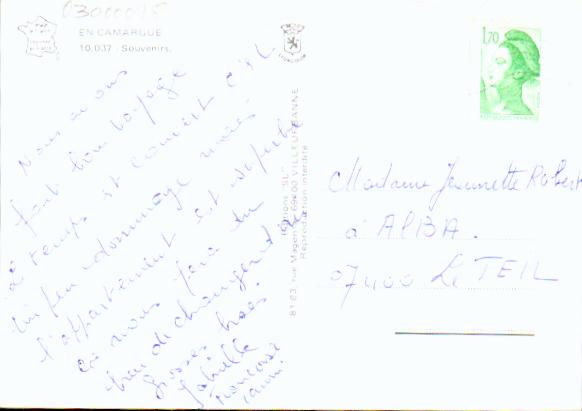 03000075
EN CAMARGUE
10.037 - Souvenirs.
Nous avons
fait bon voyage
le temps est couvert c'est
un peu dommage mais
l'appartement est superbe
ca nous fera du
bien de changer d'air
grosses bises
Francoise
1,70
Editions "SL"
81-83, rue Magenta 69100 VILLEURBANNE
Reproduction interdite
Madame Jeannette Robert
à ALBA.
07400 Le TEIL